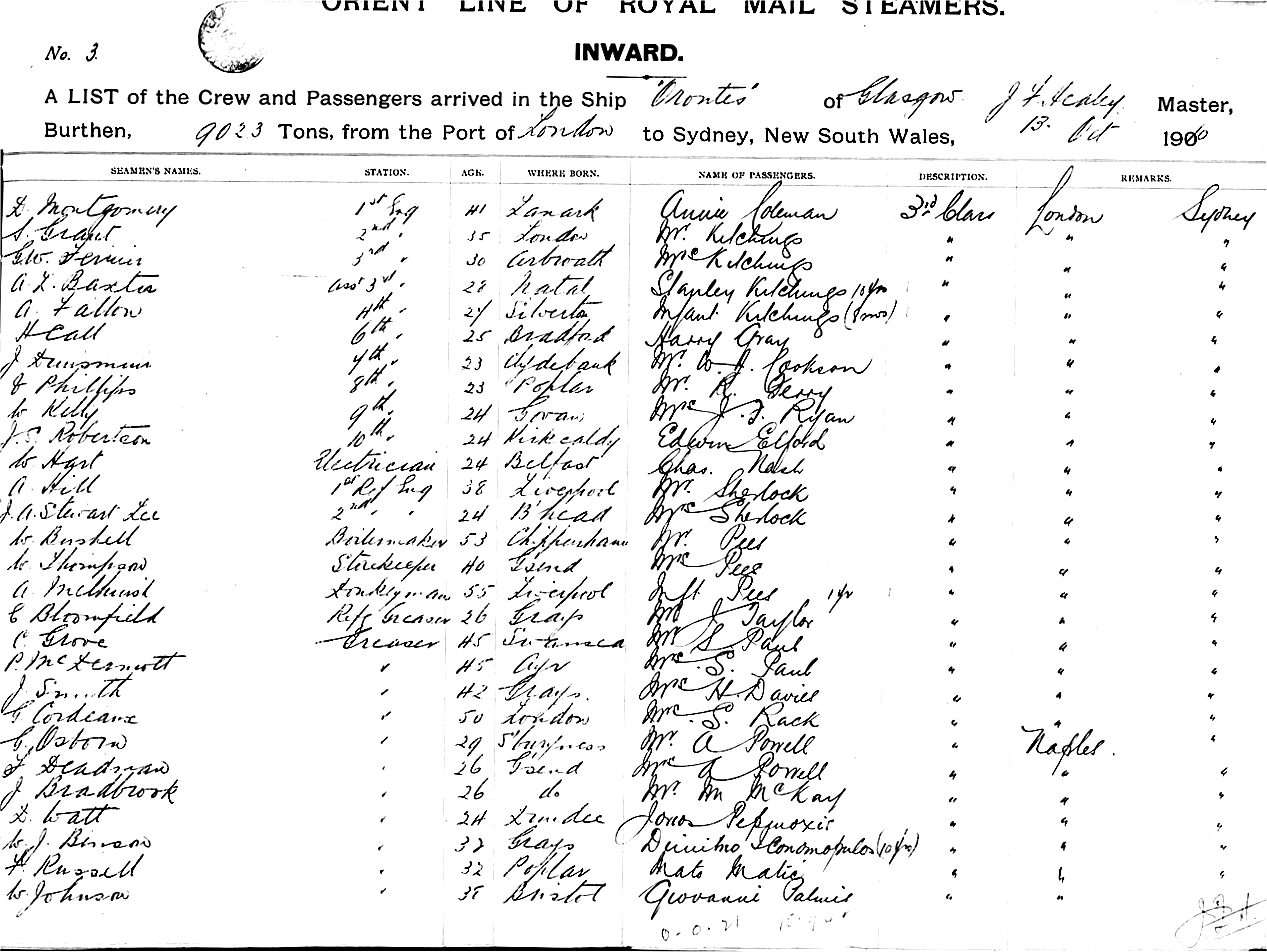 ORIENT LINE OF ROYAL MAIL STEAMERS.
No. 3.
INWARD.
A LIST of the Crew and Passengers arrived in the Ship "Orontes" of Glasgow J F Healey Master,
Burthen, 9023 Tons, from the Port of London to Sydney, New South Wales, 13. Oct 1906
SEAMEN'S NAMES. STATION. AGE. WHERE BORN. NAME OF PASSENGERS. DESCRIPTION. REMARKS.
D. Montgomery 1st Eng 41 Lanark Annie Coleman 3rd Class London Sydney
S. Grant 2nd " 35 London Mr. Kitchings " " "
G.W. Ferrier 3rd " 30 Arbroath Mrs Kitchings " " "
A. L. Baxter Ass 3rd " 28 Natal Stanley Kitchings 10 yrs " " "
A. Fallon 4th " 27 Infant Kitchings (8 mos) " " "
H Call 6th " 25 Bradford Harry Gray " " "
J 7th " 23 Clydebank Mr. W. J. Cookson " " "
Phillips 8th " 23 Poplar Mr. R. Berry " " "
W Kelly 9th " 24 Govan Mrs J. F. Ryan " " "
J.S. Robertson 10th " 24 Kirkcaldy Edwin Elford " " "
W. Hart Electrician 24 Belfast Chas. Nash " " "
A. Hill 1st Ref Eng 38 Liverpool Mr. Sherlock " " "
J.A. Stewart Lee 2nd " " 24 B'head Mrs Sherlock " " "
W. Bushell Boilermaker 53 Chippenham Mr. Pees " " "
W. Thompson Storekeeper 40 G'send Mrs Pees " " "
A. Donkeyman 55 Liverpool Inft Pees 1 yr " " "
E Bloomfield Refg Greaser 26 Grays Mr J Taylor " " "
C. Grove Greaser 45 Swansea Mr S Paul " " "
P. McDermott " 45 Ayr Mrs. S. Paul " " "
J. Smith " 42 Grays. Mrs H. Davies " " "
G Cordeaux " 50 London Mrs. S. Rack " " "
G. Osborn " 29 S'burgness Mr. A Powell " Naples. "
Deadman " 26 G'send Mrs A Powell " " "
J. Bradbrook " 26 do Mr. M McKay " " "
D. Watt " 24 Dundee " " "
W. J. Binson " 32 Grays (10 yrs) " " "
F. Russell " 32 Poplar Mato Matic " " "
W Johnson " 38 Bristol Giovanni " "